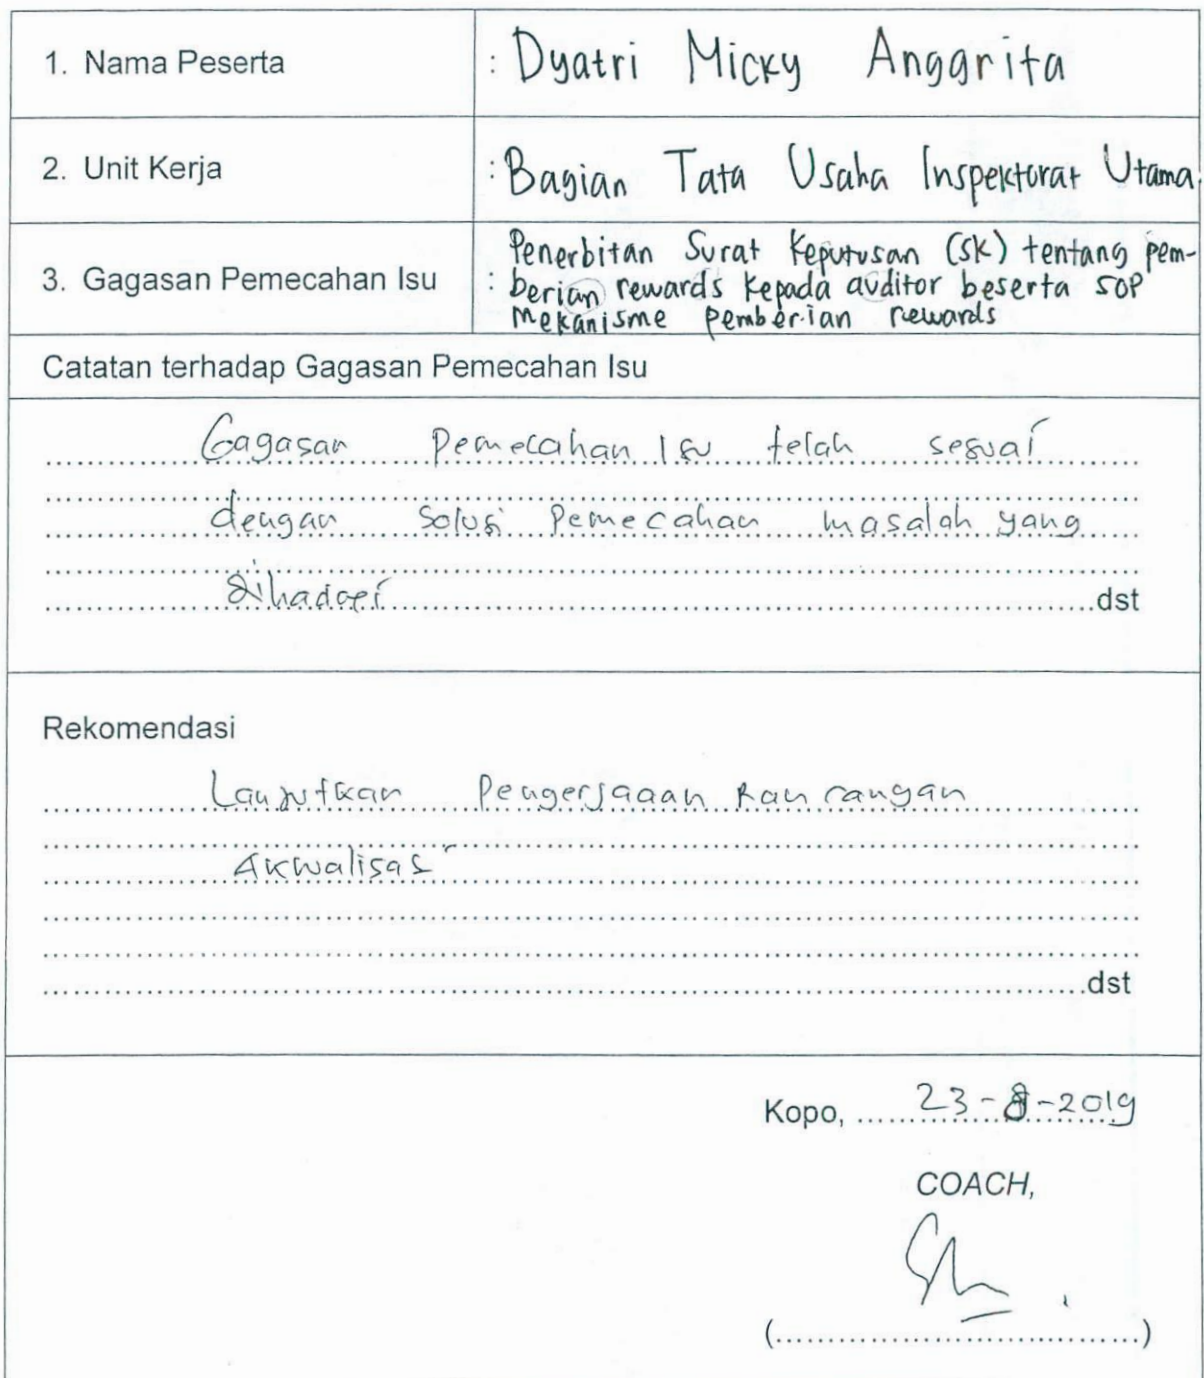 1. Nama Peserta : Dyatri Micky Anggrita
2. Unit Kerja : Bagian Tata Usaha Inspektorat Utama
3. Gagasan Pemecahan Isu : Penerbitan Surat Keputusan (SK) tentang pem-
berian rewards kepada auditor beserta SOP
mekanisme pemberian rewards
Catatan terhadap Gagasan Pemecahan Isu
Gagasan Pemecahan Isu telah sesuai
dengan Solusi Pemecahan masalah yang
dihadapi dst
Rekomendasi
Lanjutkan Pengerjaaan Rancangan
Akwalisasi
dst
Kopo, 23-8-2019
COACH,
(...................................)